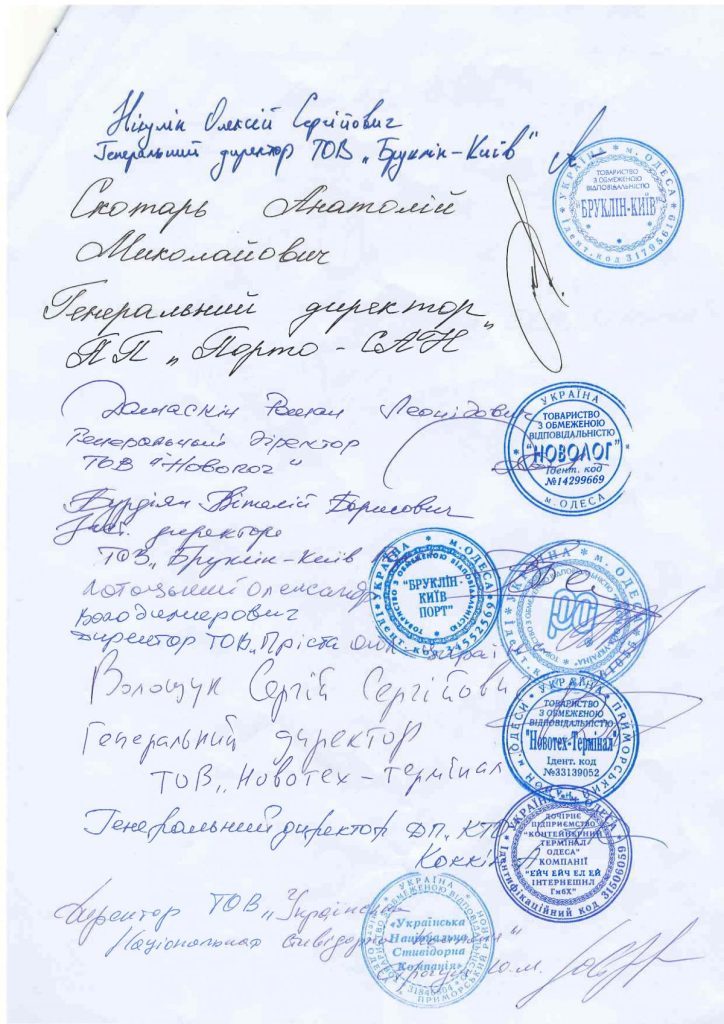 Нікулін Олексій Сергійович
Генеральний директор ТОВ „Бруклін-Київ"
УКРАЇНА * м. ОДЕСА * Ідент. код 31795619
ТОВАРИСТВО
З ОБМЕЖЕНОЮ
ВІДПОВІДАЛЬНІСТЮ
"БРУКЛІН-КИЇВ"
Скотарь Анатолій
Миколайович
Генеральний директор
ПП „Порто-САН"
Дамаскін Роман Леонідович
Генеральний діректор
ТОВ "Новолог"
УКРАЇНА
ТОВАРИСТВО
З ОБМЕЖЕНОЮ
ВІДПОВІДАЛЬНІСТЮ
"НОВОЛОГ"
Ідент. код
№14299669
м. ОДЕСА
Віталій Борисович
директора
ТОВ „Бруклін-Київ
УКРАЇНА * м. ОДЕСА * Ідент. код 34552569
ТОВАРИСТВО З ОБМЕЖЕНОЮ ВІДПОВІДАЛЬНІСТЮ
"БРУКЛІН-
КИЇВ
ПОРТ"
Олександр
Володимирович
директор ТОВ „Пріста Оил Україна
УКРАЇНА * м. ОДЕСА
Волощук Сергій Сергійович
Генеральний директор
ТОВ „Новотех-термінал
ТОВАРИСТВО
З ОБМЕЖЕНОЮ
ВІДПОВІДАЛЬНІСТЮ
"Новотех-Термінал"
Ідент. код
№33139052
Генеральний директор ДП „КТО
УКРАЇНА * ОДЕСА * Ідентифікаційний код 31506059
ДОЧІРНЄ
ПІДПРИЄМСТВО
"КОНТЕЙНЕРНИЙ
ТЕРМІНАЛ
ОДЕСА"
КОМПАНІЇ
"ЕЙЧ ЕЙЧ ЕЛ ЕЙ
ІНТЕРНЕШНЛ
ГмбХ"
Директор ТОВ „Українська
Національна стивідорна компанія"
«Українська
Національна
Стивідорна
Компанія»